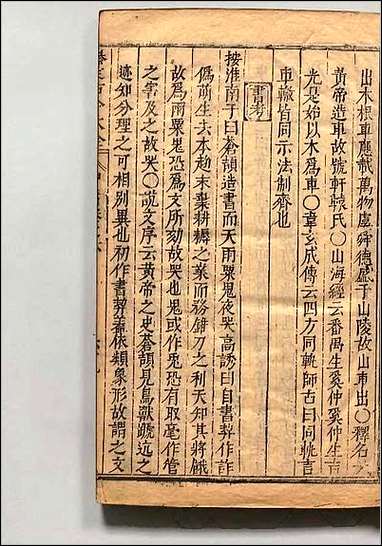 出木根車應載萬物虞舜德盛于山陵故山車出〇釋名
黃帝造車故號軒轅氏〇山海經云番禺生奚仲奚仲生吉
光是始以木爲車〇韋玄成傳云四方同軌師古曰同軌言
車轍皆同示法制齊也
書考
按淮南子曰蒼頡造書而天雨粟鬼夜哭高誘曰自書契作詐
僞萌生去本趍末棄耕耨之業而務錐刀之利天知其將餓
故爲雨粟鬼恐爲文所劾故哭也鬼或作兎恐有取毫作管
之害及之故哭〇説文序云黃帝之史蒼頡見鳥獸蹏迒之
迹知分理之可相別異也初作書契葢依類象形故謂之文